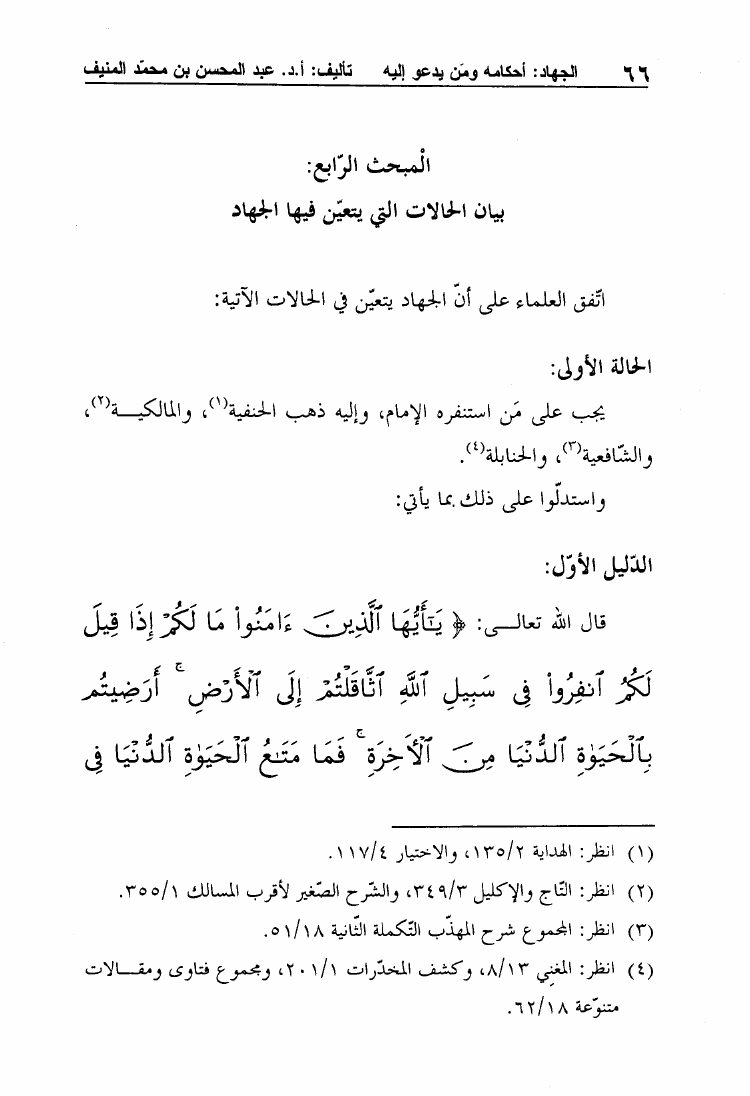 ٦٦ الجهاد: أحكامه ومَن يدعو إليه تأليف: أ.د. عبد المحسن بن محمّد المنيف
الْمبحث الرّابع:
بيان الحالات التي يتعيّن فيها الجهاد
اتّفق العلماء على أنّ الجهاد يتعيّن في الحالات الآتية:
الحالة الأولى:
يجب على مَن استنفره الإمام، وإليه ذهب الحنفية(١)، والمالكيـــة(٢)،
والشّافعية(٣)، والحنابلة(٤).
واستدلّوا على ذلك بما يأتي:
الدّليل الأوّل:
قال الله تعالـــى: ﴿ يَـٰٓأَيُّهَا ٱلَّذِينَ ءَامَنُوا۟ مَا لَكُمْ إِذَا قِيلَ
لَكُمُ ٱنفِرُوا۟ فِى سَبِيلِ ٱللَّهِ ٱثَّاقَلْتُمْ إِلَى ٱلْأَرْضِ ۚ أَرَضِيتُم
بِٱلْحَيَوٰةِ ٱلدُّنْيَا مِنَ ٱلْـَٔاخِرَةِ ۚ فَمَا مَتَـٰعُ ٱلْحَيَوٰةِ ٱلدُّنْيَا فِى
(١) انظر: الهداية ١٣٥/٢، والاختيار ١١٧/٤.
(٢) انظر: التّاج والإكليل ٣٤٩/٣، والشّرح الصّغير لأقرب المسالك ٣٥٥/١.
(٣) انظر: المجموع شرح المهذّب التّكملة الثّانية ٥١/١٨.
(٤) انظر: المغني ٨/١٣، وكشف المخدّرات ٢٠١/١، ومجموع فتاوى ومقـــالات
متنوّعة ٦٢/١٨.